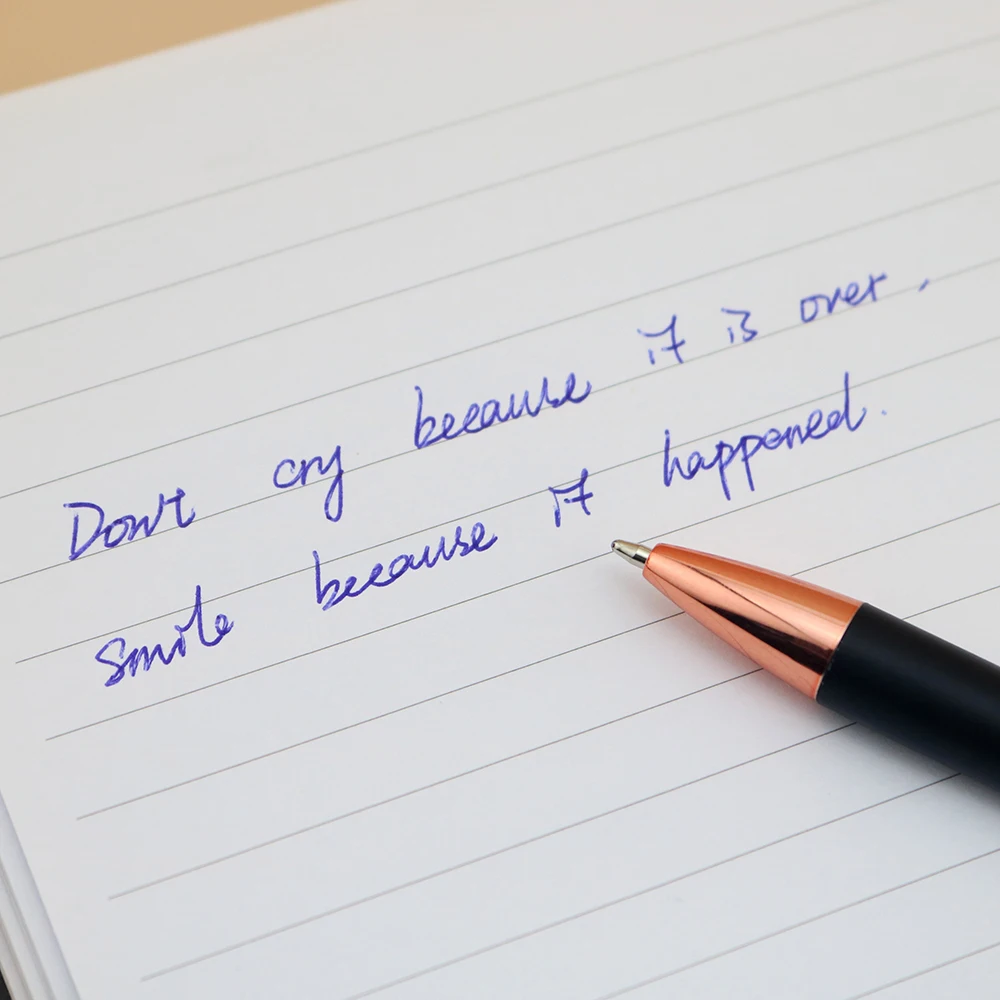 Don't cry because it is over,
Smile because it happened.